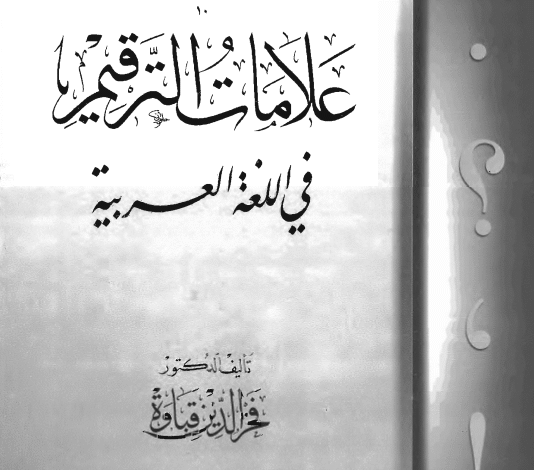 عَلَامَاتُ التَّرقِيمِ
في اللغة العربية
تَأليف الدكتور
فَخرُ الدِّين قَبَاوَة